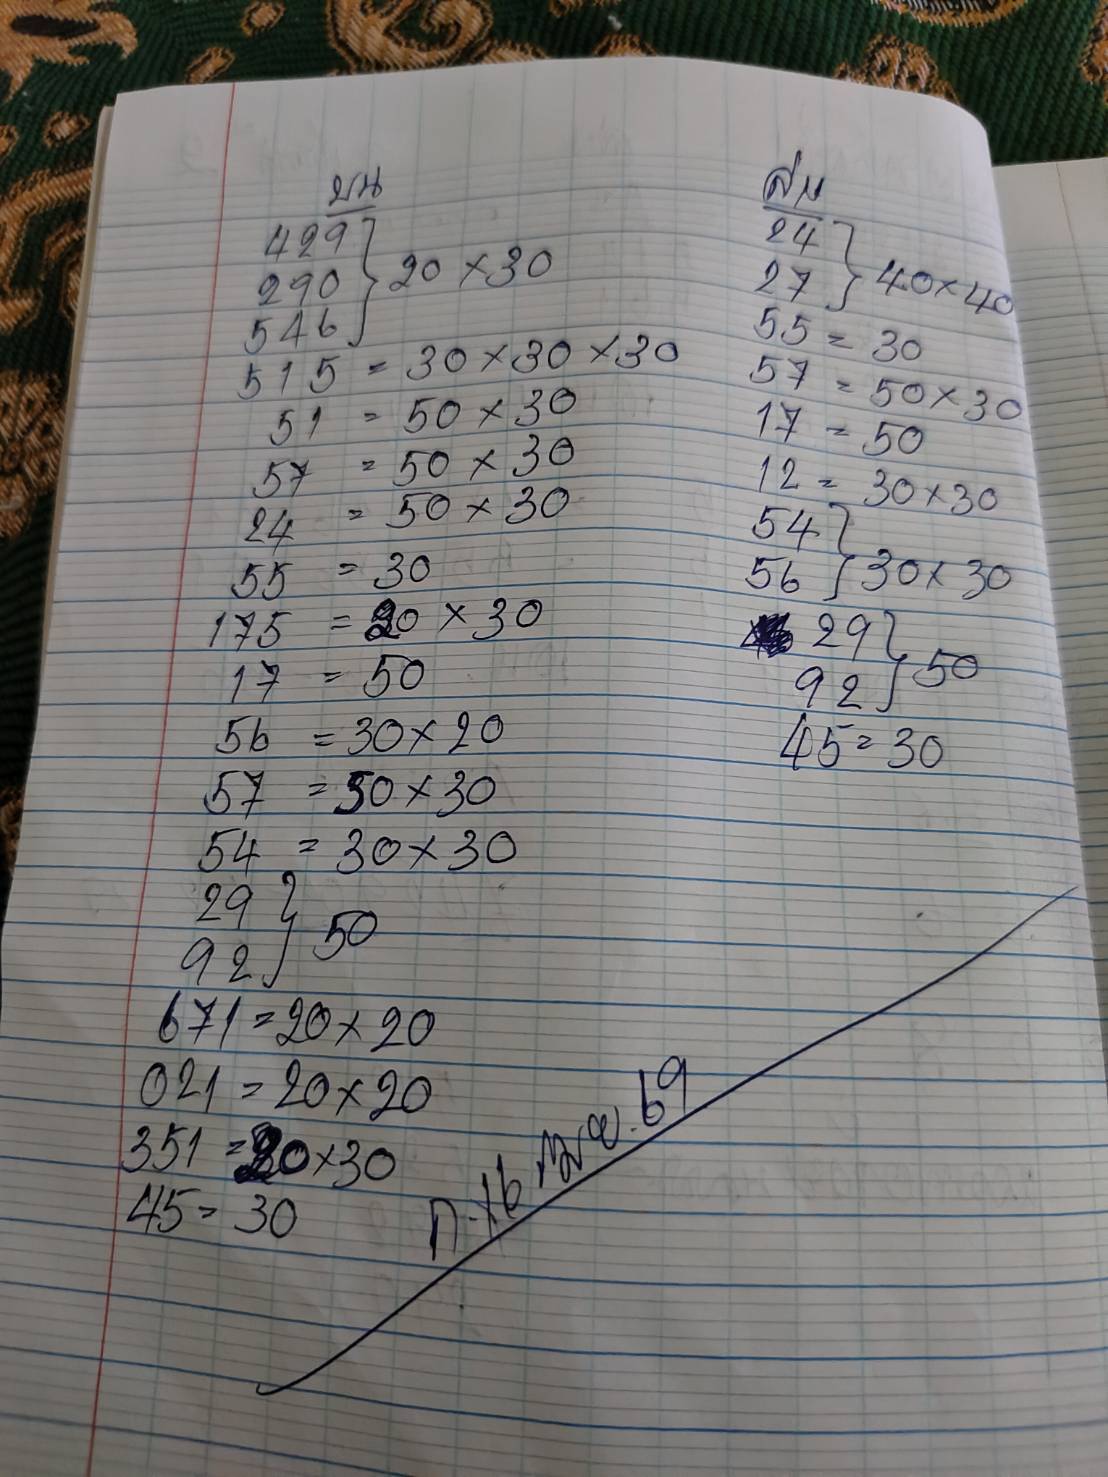 บน
429
290 } 20 × 30
546
515 = 30 × 30 × 30
51 = 50 × 30
57 = 50 × 30
24 = 50 × 30
55 = 30
175 = 20 × 30
17 = 50
56 = 30 × 20
57 = 50 × 30
54 = 30 × 30
29
92 } 50
671 = 20 × 20
021 = 20 × 20
351 = 20 × 30
45 = 30
ล่าง
24
27 } 40 × 40
55 = 30
57 = 50 × 30
17 = 50
12 = 30 × 30
54
56 } 30 × 30
29
92 } 50
45 = 30
69